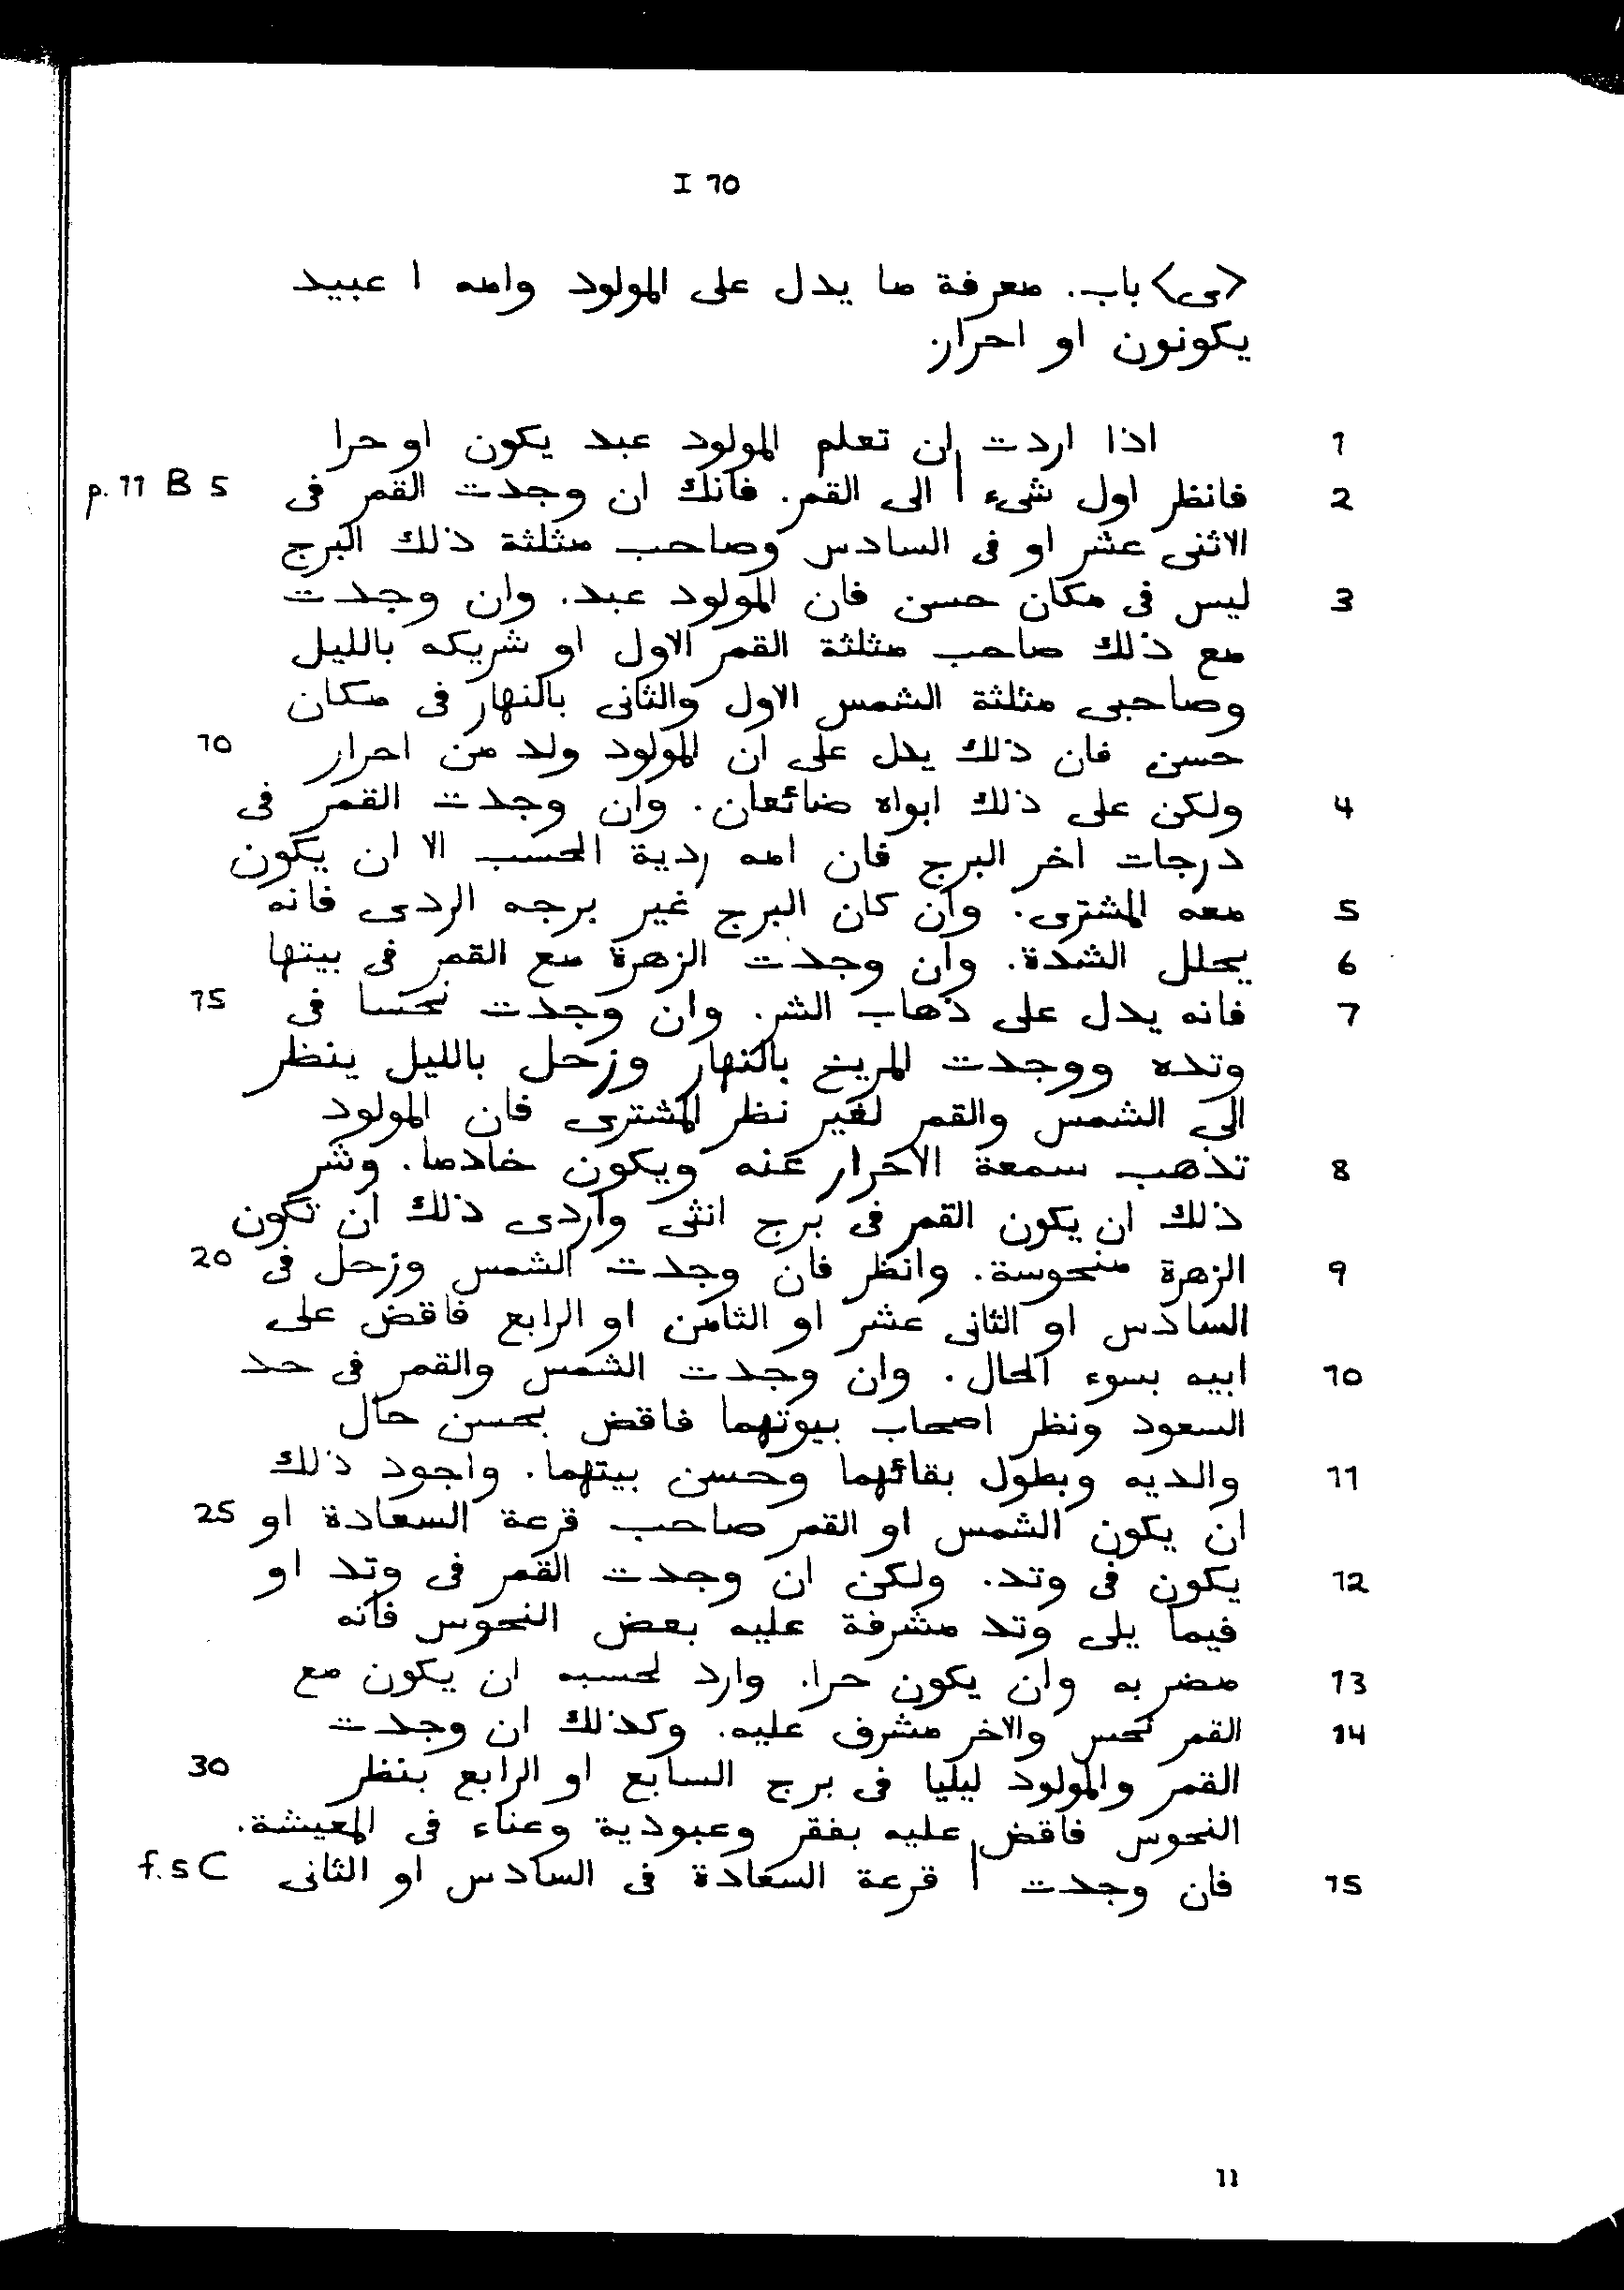 I 10
<ى> باب. معرفة ما يدل على المولود وامه ا عبيد
يكونون او احرار.
اذا اردت ان تعلم المولود عبد يكون او حرا 1
فانظر اول شىء | الى القمر. فانك ان وجدت القمر فى 2 p. 11 B 5
الاثنى عشر او فى السادس وصاحب مثلثة ذلك البرج
ليس فى مكان حسن فان المولود عبد. وان وجدت 3
مع ذلك صاحب مثلثة القمر الاول او شريكه بالليل
وصاحبى مثلثة الشمس الاول والثانى بالنهار فى مكان
حسن فان ذلك يدل على ان المولود ولد من احرار 10
ولكن على ذلك ابواه ضائعان. وان وجدت القمر فى 4
درجات اخر البرج فان امه ردية الحسب الا ان يكون
معه المشترى. وان كان البرج غير برجه الردى فانه 5
يحلل الشدة. وان وجدت الزهرة مع القمر فى بيتها 6
فانه يدل على ذهاب الشر. وان وجدت نحسا فى 7 15
وتده ووجدت المريخ بالنهار وزحل بالليل ينظر
الى الشمس والقمر لغير نظر المشترى فان المولود
تذهب سمعة الاحرار عنه ويكون خادما. وشر 8
ذلك ان يكون القمر فى برج انثى واردى ذلك ان تكون
الزهرة منحوسة. وانظر فان وجدت الشمس وزحل فى 9 20
السادس او الثانى عشر او الثامن او الرابع فاقض على
ابيه بسوء الحال. وان وجدت الشمس والقمر فى حد 10
السعود ونظر اصحاب بيوتهما فاقض بحسن حال
والديه وبطول بقائهما وحسن بيتهما. واجود ذلك 11
ان يكون الشمس او القمر صاحب قرعة السعادة او 25
يكون فى وتد. ولكن ان وجدت القمر فى وتد او 12
فيما يلى وتد مشرفة عليه بعض النحوس فانه
مضر به وان يكون حرا. وارد لحسبه ان يكون مع 13
القمر نحس والاخر مشرف عليه. وكذلك ان وجدت 14
القمر والمولود ليليا فى برج السابع او الرابع بنظر 30
النحوس فاقض عليه بفقر وعبودية وعناء فى المعيشة.
فان وجدت | قرعة السعادة فى السادس او الثانى 15 f. 5 C
11